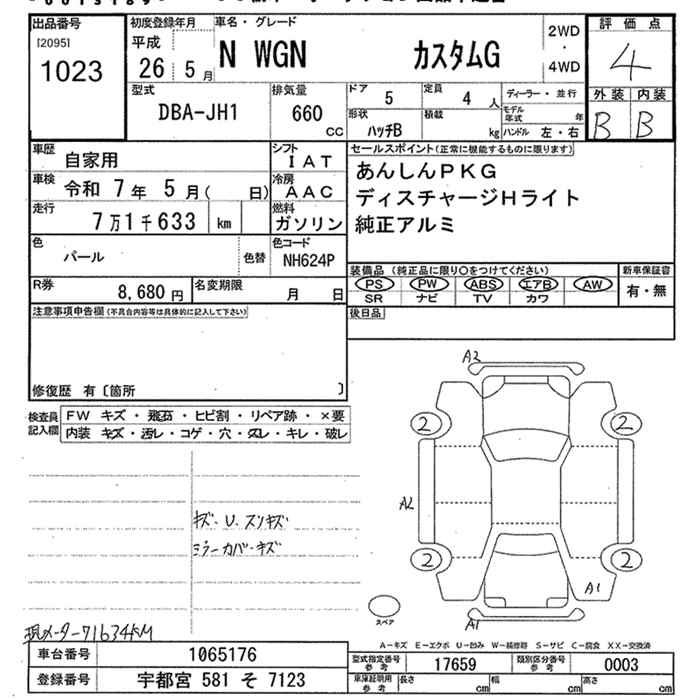 出品番号 初度登録年月 車名・グレード 評価点
[2095]
1023
平成
26年 5月
N WGN カスタムG
2WD
・
4WD
4
型式 排気量 ドア 定員 ディーラー・並行 外装 内装
DBA-JH1 660 CC 5 4人 モデル年式 年 B B
形状 積載
ハッチB kg ハンドル 左・右
車歴 自家用 シフト IAT
車検 令和 7年 5月( 日) 冷房 AAC
走行 7万1千633 km 燃料 ガソリン
色 パール 色替 色コード NH624P
R券 8,680円 名変期限 月 日
セールスポイント(正常に機能するものに限ります)
あんしんPKG
ディスチャージHライト
純正アルミ
装備品(純正品に限り○をつけてください) 新車保証書
PS PW ABS エアB AW 有・無
SR ナビ TV カワ
後日品
注意事項申告欄(不具合内容等は具体的に記入して下さい)
修復歴 有〔箇所 〕
検査員記入欄 FW キズ・飛石・ヒビ割・リペア跡・×要
内装 キズ・汚レ・コゲ・穴・スレ・キレ・破レ
キズ・U・スリキズ
ミラーカバーキズ
A2
2 2
A2
2 2
A1
A1
スペア
現メーター71634KM
A-キズ E-エクボ U-凹み W-補修跡 S-サビ C-腐食 XX-交換済
車台番号 1065176 型式指定番号参考 17659 類別区分番号参考 0003
登録番号 宇都宮 581 そ 7123 車庫証明用参考 長さ cm 幅 cm 高さ cm